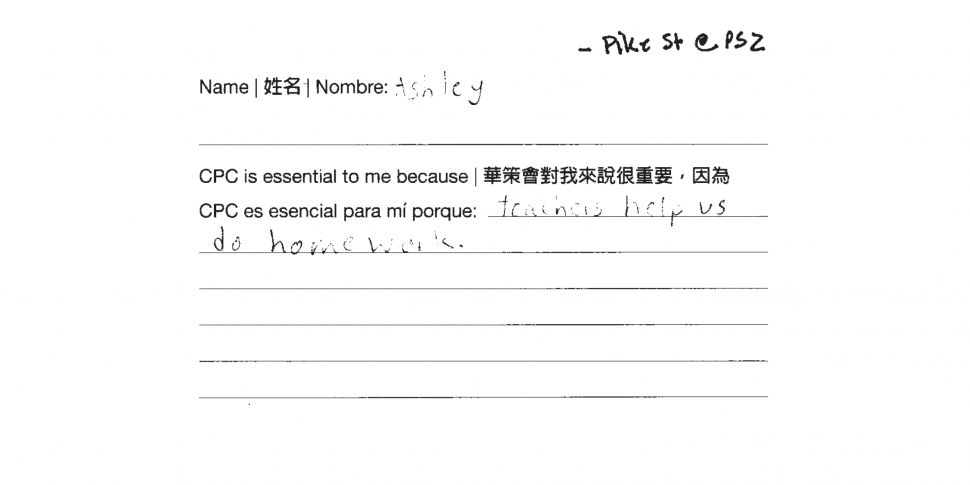 - Pike St @ PS2
Name | 姓名 | Nombre: Ashley
CPC is essential to me because | 華策會對我來說很重要，因為
CPC es esencial para mí porque: teachers help us
do homework.